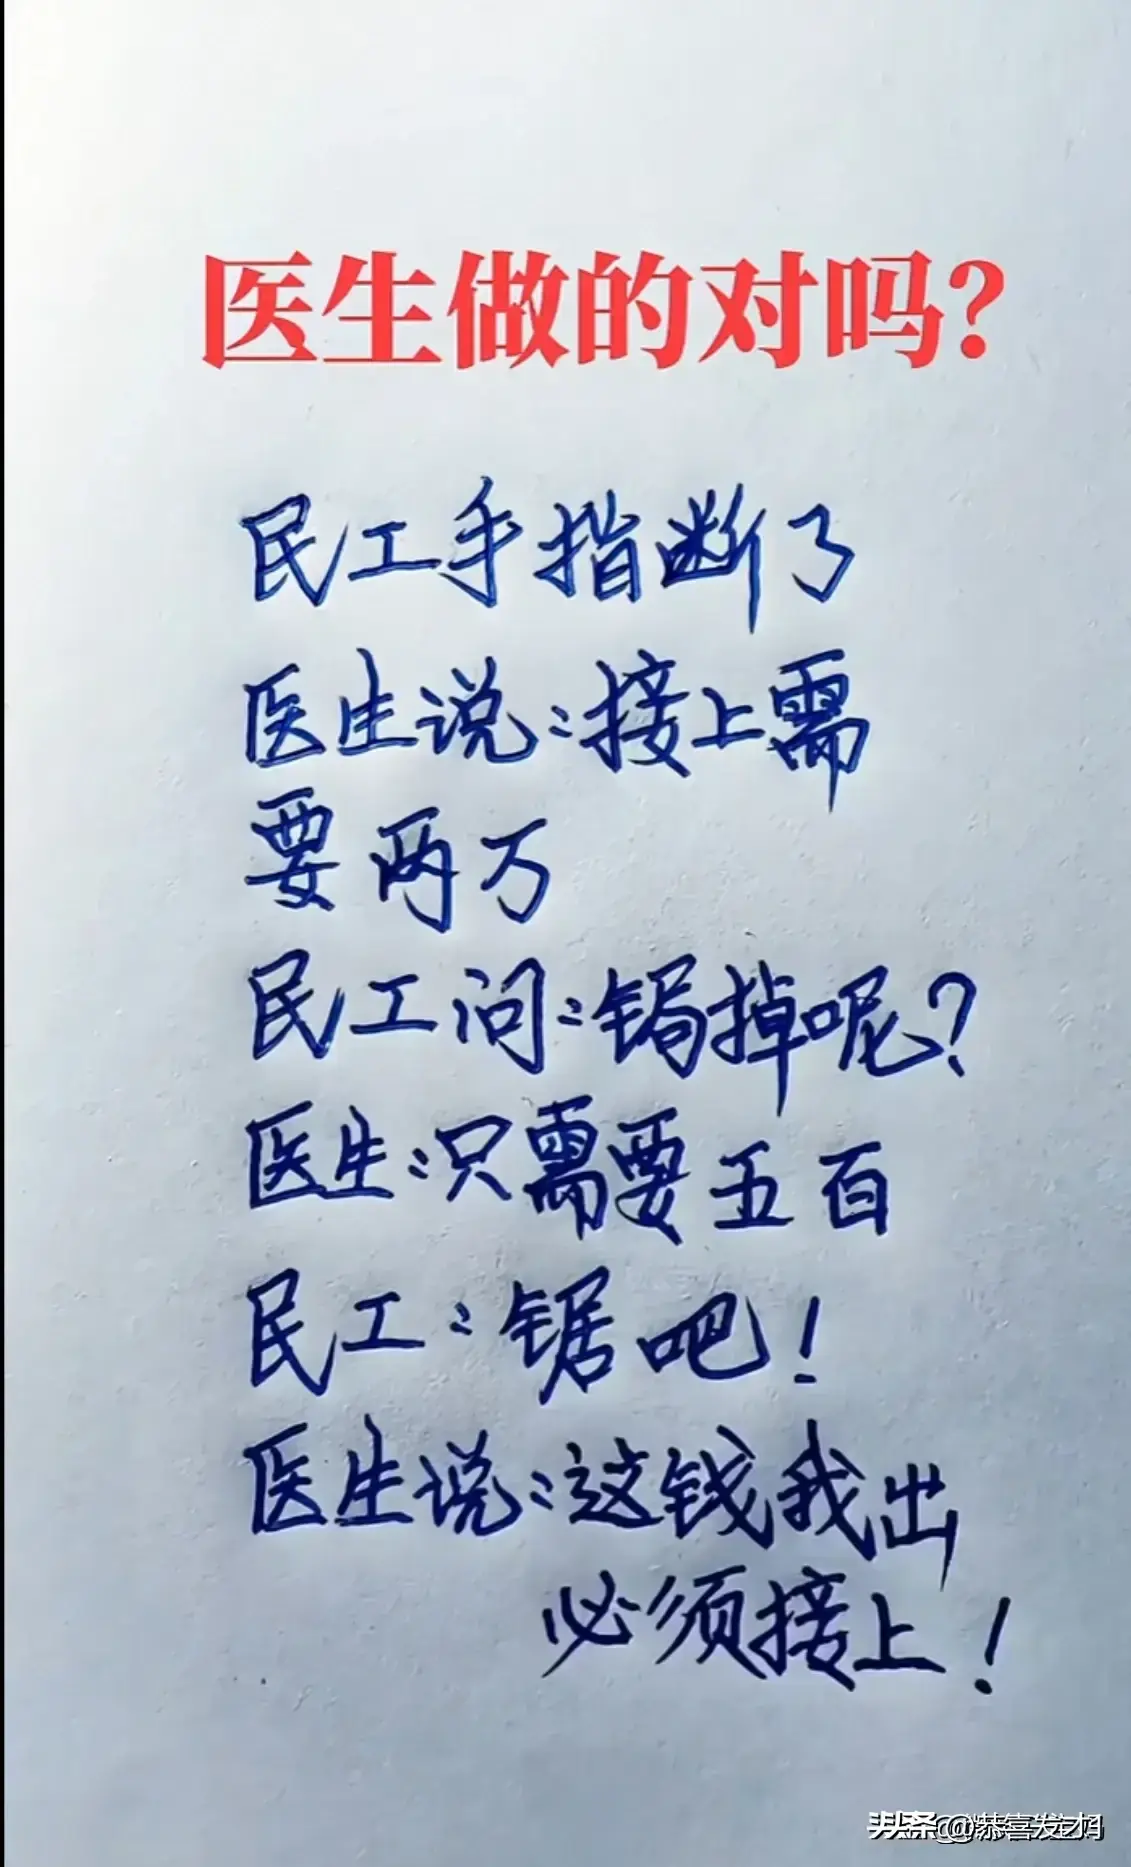 医生做的对吗?
民工手指断了
医生说:接上需
要两万
民工问:锯掉呢?
医生:只需要五百
民工:锯吧!
医生说:这钱我出
必须接上!
头条 @恭喜发才